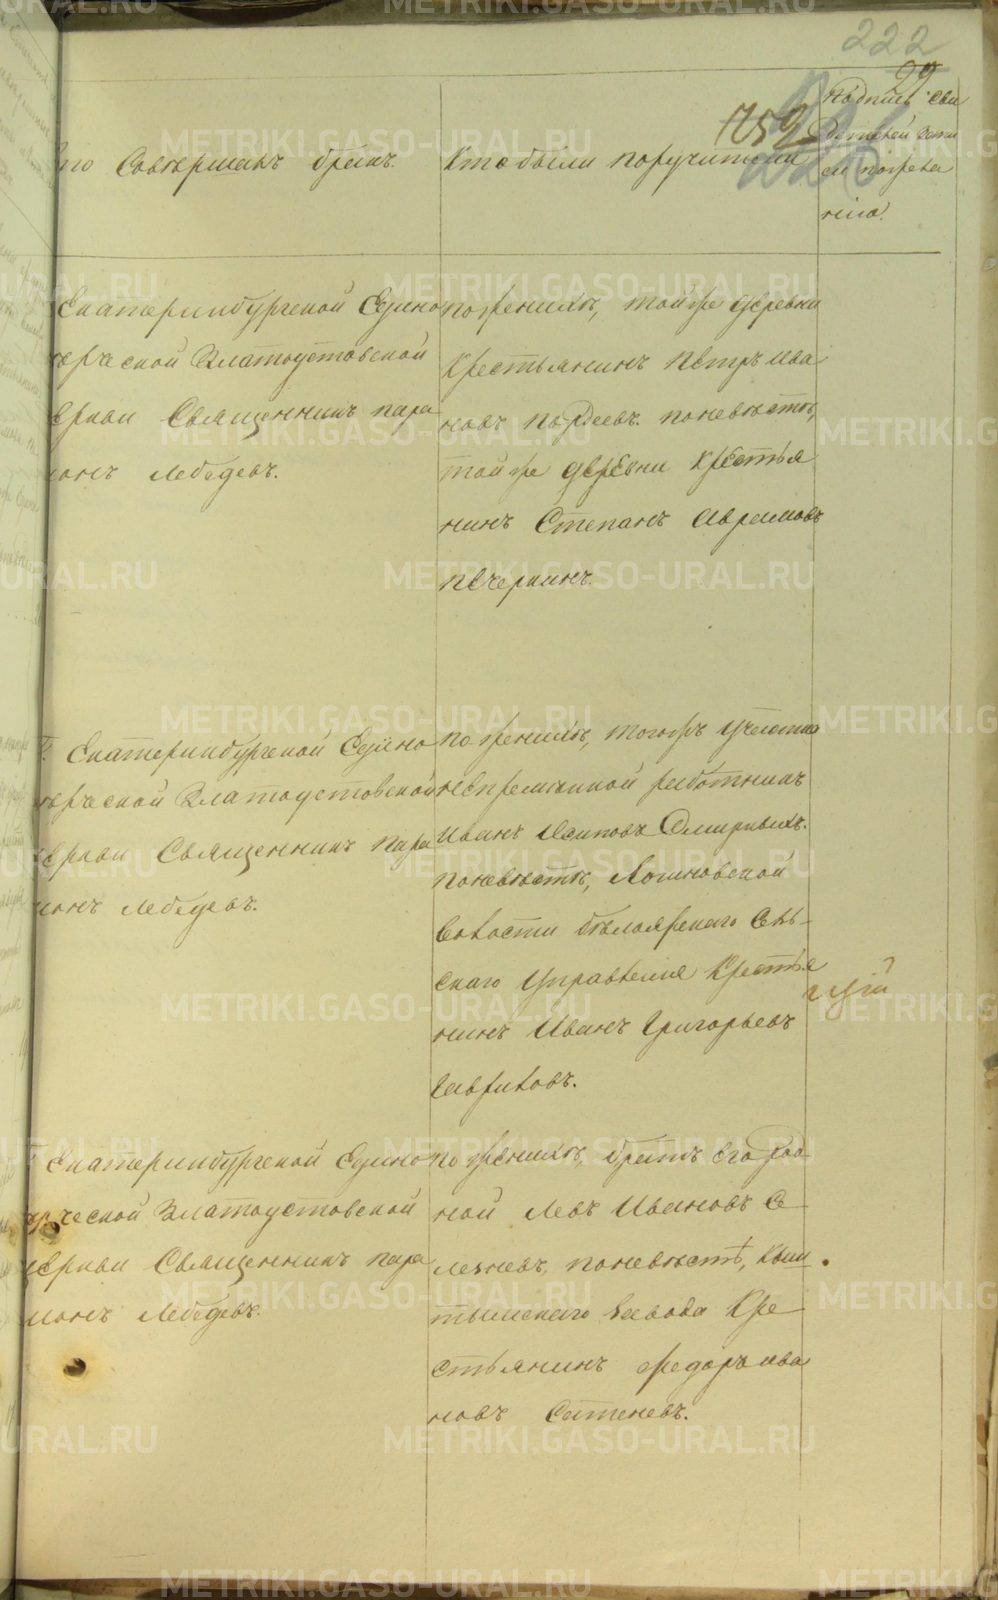 222
99
1759
Кто Совершалъ бракъ.
Кто были поручители
Подпись сви
детелей запи
си по желa
нию.
Екатеринбургской Едино
верческой Златоустовской
церкви Священникъ Пара
монъ Лебедевъ.
по женихѣ, той же деревни
Крестьянинъ Петръ Ива
новъ
по невѣстѣ,
той же деревни Крестья
нинъ Степанъ Аврамовъ
Печеркинъ.
Екатеринбургской Едино
верческой Златоустовской
церкви Священникъ Пара
монъ Лебедевъ.
по женихѣ, того жъ участка
непременной работникъ
Иванъ Осиповъ
по невѣстѣ, Логиновской
волости Бѣлоярскаго Сель
скаго Управления Крестья
нинъ Иванъ Григорьевъ
Гавриловъ.
Екатеринбургской Едино
верческой Златоустовской
церкви Священникъ Пара
монъ Лебедевъ.
по женихѣ, братъ его род
ной Левъ Ивановъ Се
лезневъ, по невѣстѣ, Кыш
тымскаго завода Кре
стьянинъ Федоръ Ива
новъ
METRIKI.GASO-URAL.RU